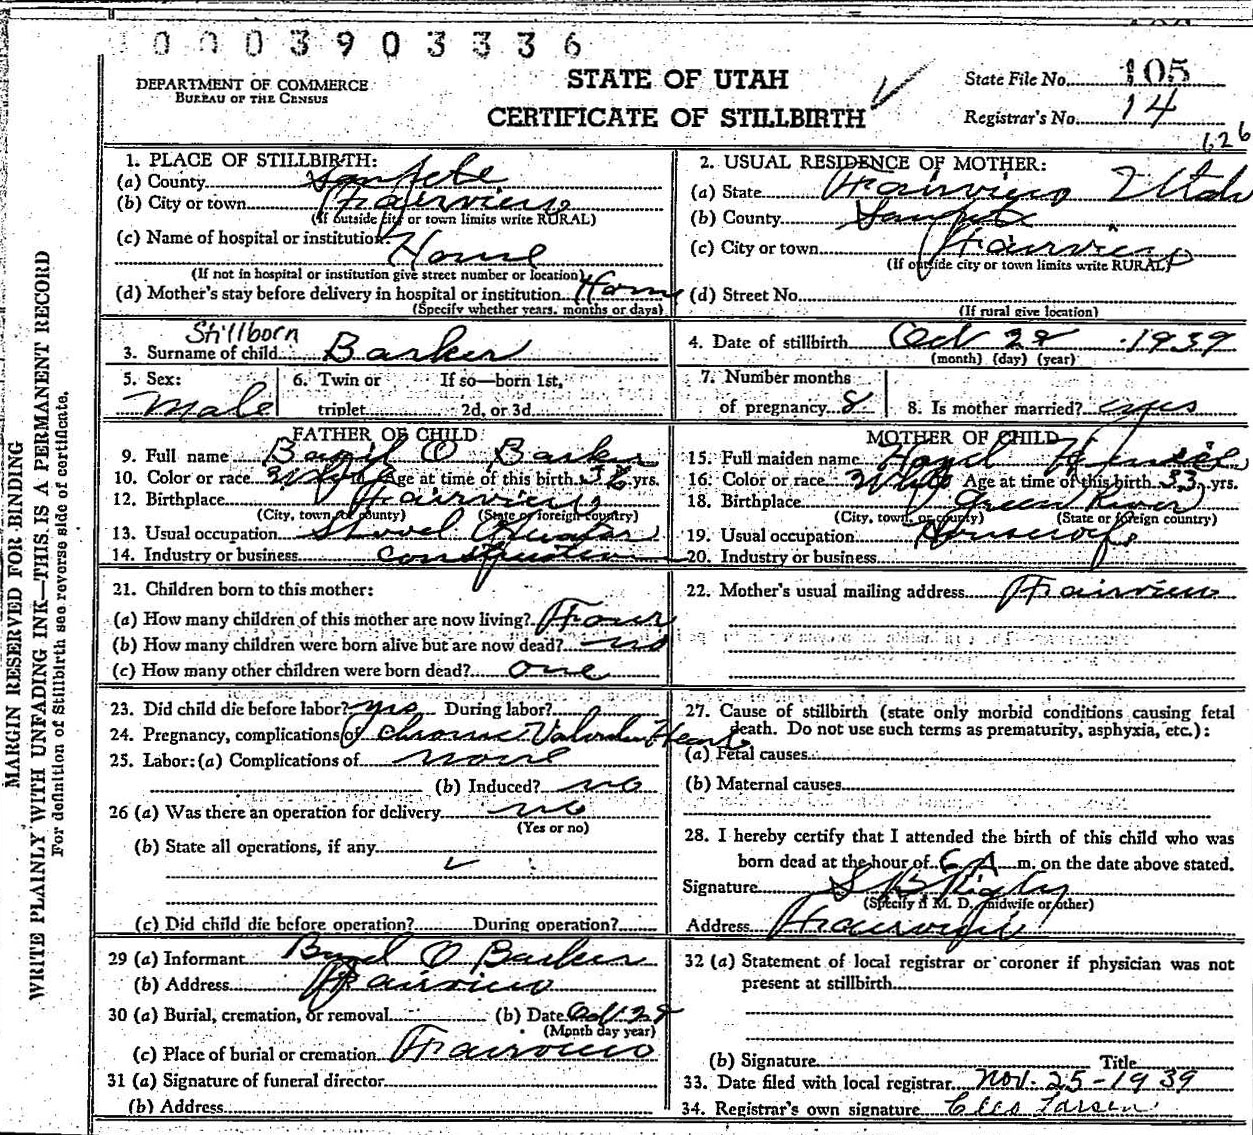 0003903336
DEPARTMENT OF COMMERCE
BUREAU OF THE CENSUS
STATE OF UTAH
CERTIFICATE OF STILLBIRTH
State File No. 105
Registrar's No. 14
126
1. PLACE OF STILLBIRTH:
(a) County Sanpete
(b) City or town Fairview
(If outside city or town limits write RURAL)
(c) Name of hospital or institution: Home
(If not in hospital or institution give street number or location)
(d) Mother's stay before delivery in hospital or institution Home
(Specify whether years, months or days)
2. USUAL RESIDENCE OF MOTHER:
(a) State Fairview Utah
(b) County Sanpete
(c) City or town Fairview
(If outside city or town limits write RURAL)
(d) Street No.
(If rural give location)
Stillborn
3. Surname of child Barker
4. Date of stillbirth Oct 28 1939
(month) (day) (year)
5. Sex: Male
6. Twin or triplet If so—born 1st, 2d, or 3d
7. Number months of pregnancy 8
8. Is mother married? yes
FATHER OF CHILD
9. Full name O Barker
10. Color or race White Age at time of this birth yrs.
12. Birthplace Fairview
(City, town, or county) (State or foreign country)
13. Usual occupation Shovel Operator
14. Industry or business construction
MOTHER OF CHILD
15. Full maiden name Hazel
16. Color or race White Age at time of this birth 33 yrs.
18. Birthplace Green River
(City, town, or county) (State or foreign country)
19. Usual occupation Housewife
20. Industry or business
21. Children born to this mother:
(a) How many children of this mother are now living? Four
(b) How many children were born alive but are now dead? no
(c) How many other children were born dead? one
22. Mother's usual mailing address Fairview
23. Did child die before labor? yes During labor?
24. Pregnancy, complications of Chronic Valvular Heart
25. Labor: (a) Complications of none
(b) Induced? no
26 (a) Was there an operation for delivery no
(Yes or no)
(b) State all operations, if any
(c) Did child die before operation? During operation?
27. Cause of stillbirth (state only morbid conditions causing fetal
death. Do not use such terms as prematurity, asphyxia, etc.):
(a) Fetal causes
(b) Maternal causes
28. I hereby certify that I attended the birth of this child who was
born dead at the hour of 6 A m. on the date above stated.
Signature S B Rigby
(Specify if M. D., midwife or other)
Address Fairview
29 (a) Informant O Barker
(b) Address Fairview
30 (a) Burial, cremation, or removal (b) Date Oct 28
(Month day year)
(c) Place of burial or cremation Fairview
31 (a) Signature of funeral director
(b) Address
32 (a) Statement of local registrar or coroner if physician was not
present at stillbirth
(b) Signature Title
33. Date filed with local registrar Nov. 25-1939
34. Registrar's own signature Larsen
MARGIN RESERVED FOR BINDING
WRITE PLAINLY WITH UNFADING INK—THIS IS A PERMANENT RECORD
For definition of Stillbirth see reverse side of certificate.